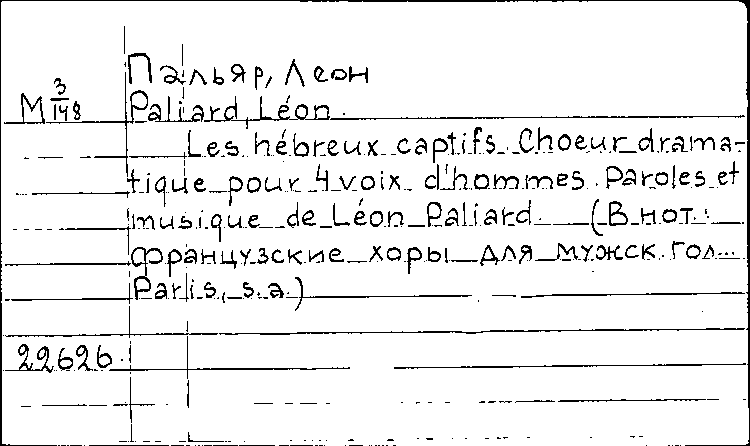 Пальяр, Леон
М 3/148 Paliard, Léon.
Les hébreux captifs. Choeur drama-
tique pour 4 voix d'hommes. Paroles et
musique de Léon Paliard. (В нот.:
французские хоры для мужск. гол...
Paris, s.a.)
22626.